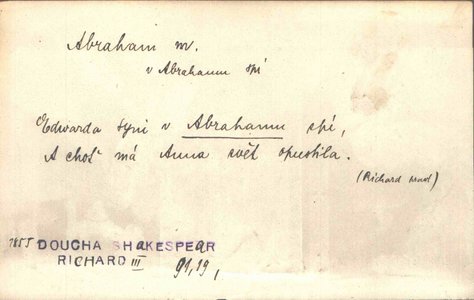 Abraham m.
v Abrahamu spí
Edwarda syni v Abrahamu spí,
A choť má Anna svět opustila.
(Richard
1855 DOUCHA SHAKESPEAR
RICHARD III 91,19,